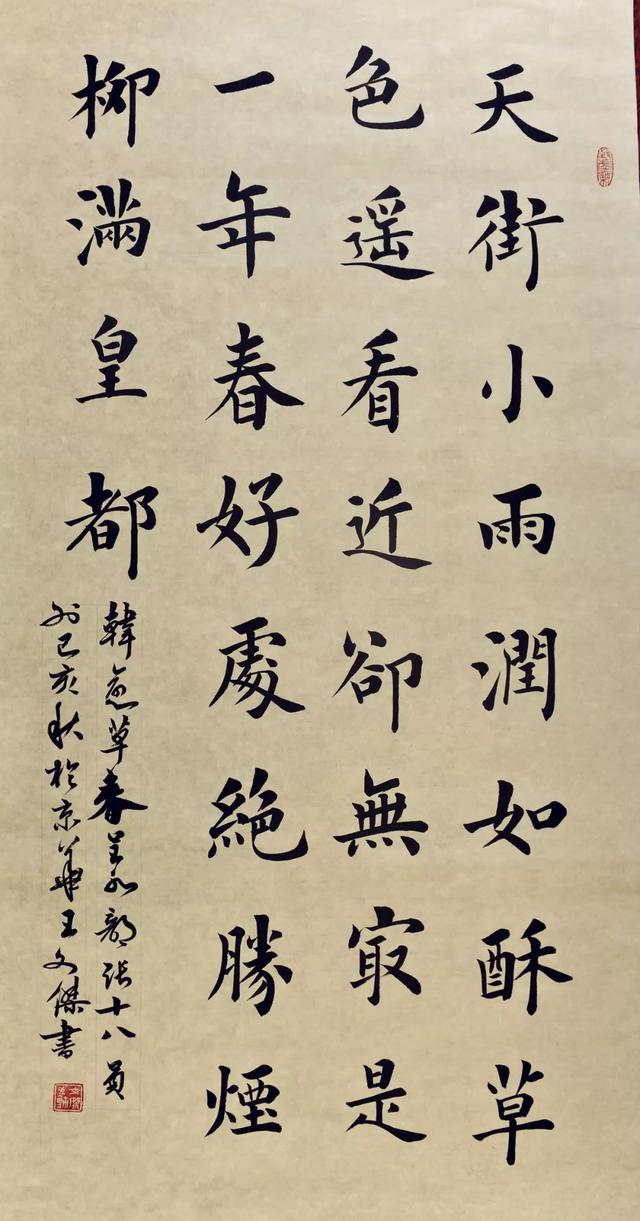 天街小雨潤如酥草
色遥看近卻無㝡是
一年春好處絶勝煙
柳滿皇都
韓愈草春呈水部張十八員
外己亥秋於京華王文傑書